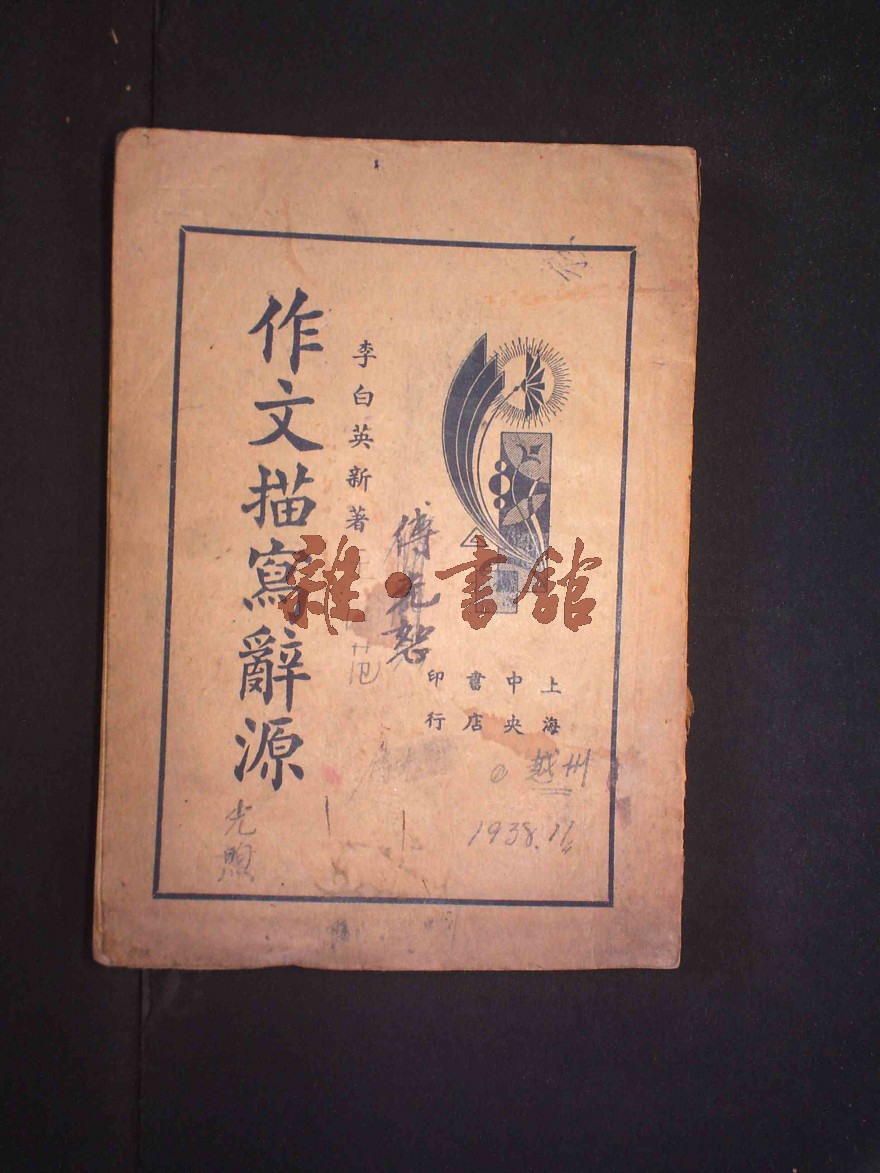 作文描寫辭源
李白英新著
上海
中央
書店
印行
雜·書館
傅元恕
越州
1938.11
光照